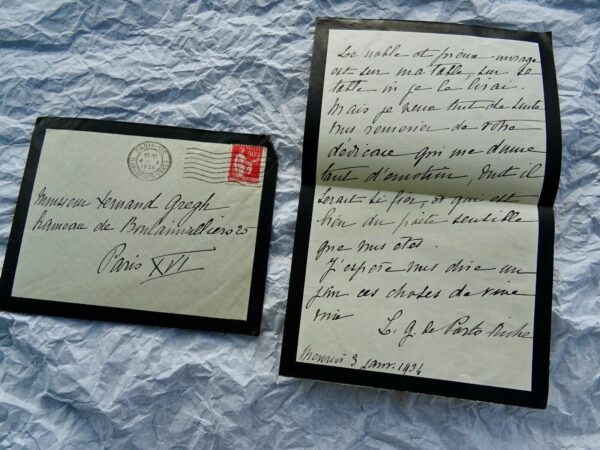 Monsieur Fernand Gregh
hameau de Boulainvilliers 25
Paris XVI
PARIS
1934
50c
Le noble et pieux ouvrage
est sur ma table, sur sa
table où je le lirai.
Mais je veux tout de suite
vous remercier de votre
dédicace qui me donne
tant d'émotion, dont il
serait si fier, et qui est
bien du poète sensible
que vous êtes.
J'espère vous dire un
jour ces choses de vive
voix
L. G. de Porto Riche
Mercredi 3 janv. 1934